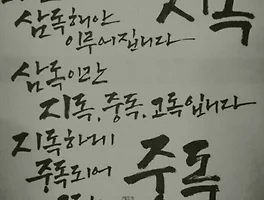 지독
삼독해야
이루어집니다
삼독이란
지독, 중독, 고독입니다
지독하게
중독되어
중독